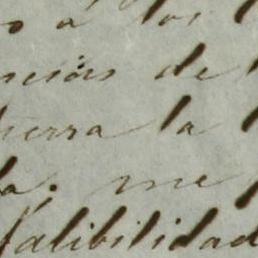 o á los
nción de
tierra la
da. me
falibilidad